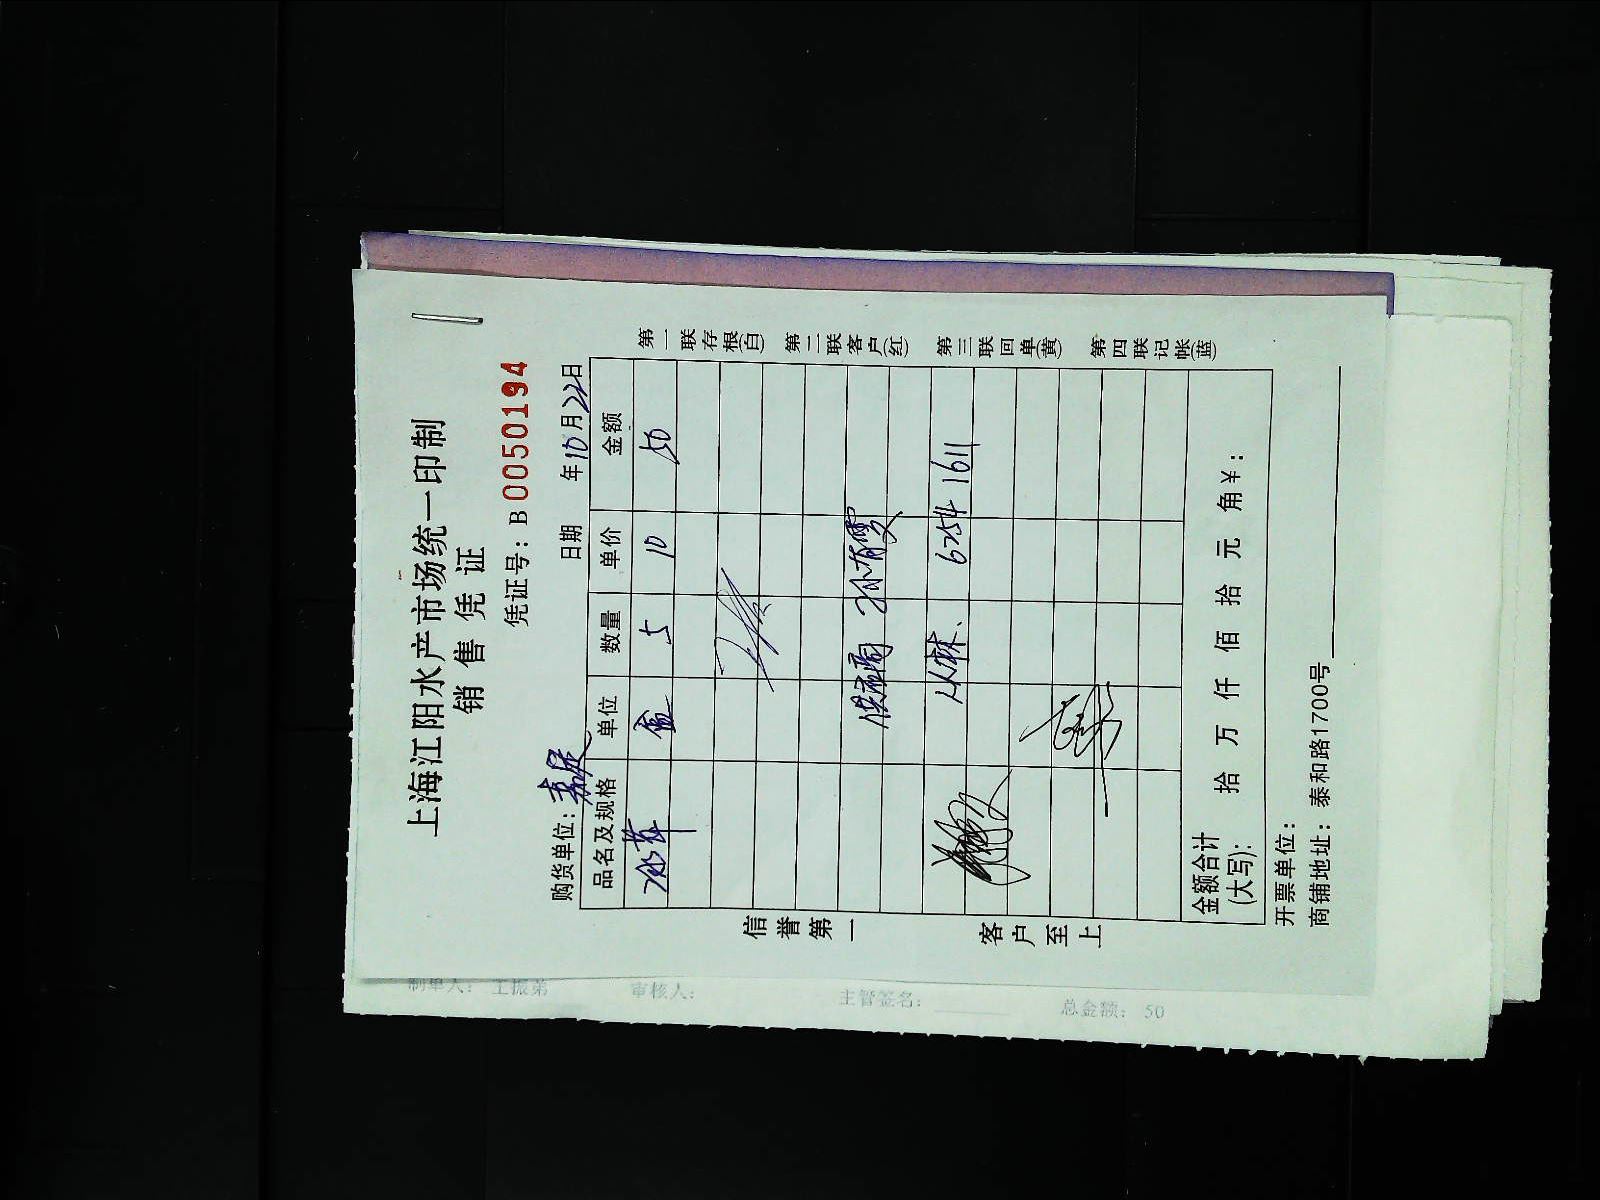 上海江阳水产市场统一印制
销售凭证
凭证号：B0050194
购货单位： 日期 年10月22日
品名及规格 单位 数量 单价 金额
盒 5 10 50
供应商 孙有雯
6254 1611
金额合计
(大写): 拾 万 仟 佰 拾 元 角￥：
开票单位：
商铺地址：泰和路1700号
信誉第一
客户至上
第一联存根(白)
第二联客户(红)
第三联回单(黄)
第四联记帐(蓝)
制单人： 王振弟 审核人： 主管签名： 总金额： 50